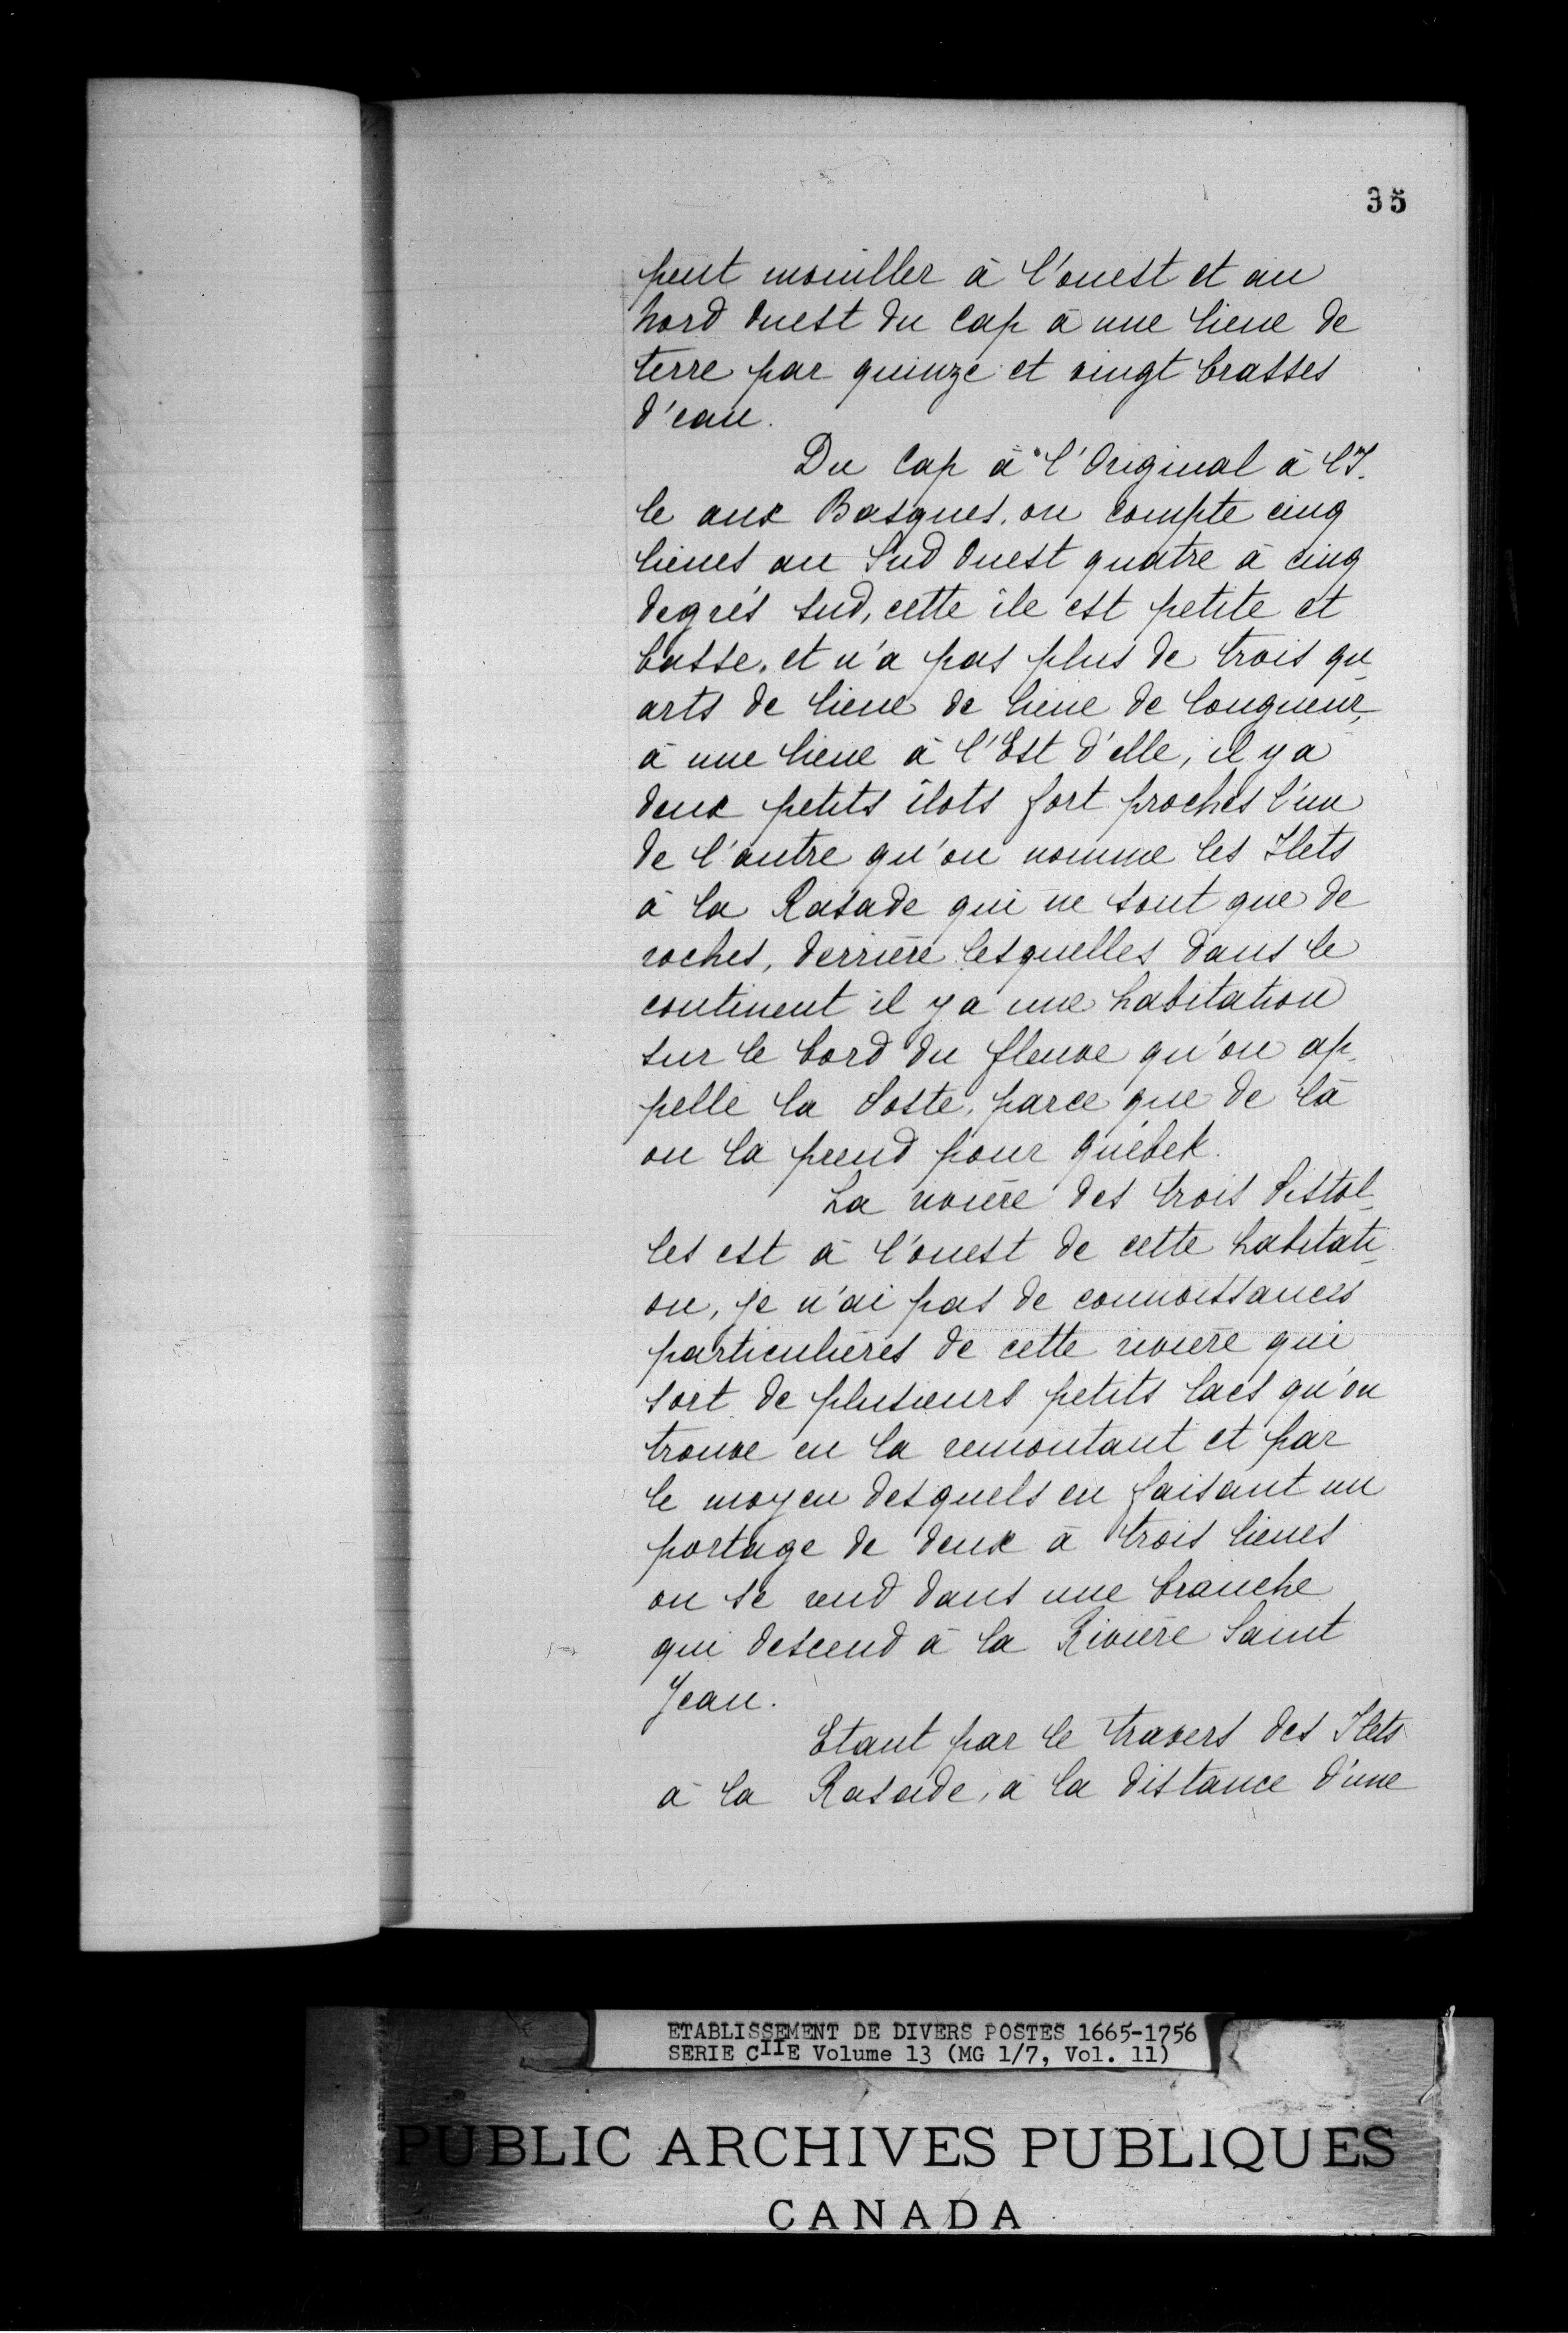 35
peut mouiller à l'ouest et au
Nord Ouest du Cap à une lieue de
terre par quinze et vingt brasses
d'eau.
Du Cap à l'Original à l'I-
le aux Basques, on compte cinq
lieues au Sud Ouest quatre à cinq
degrés sud, cette île est petite et
basse, et n'a pas plus de trois qu-
arts de lieue de lieue de longueur,
à une lieue à l'Est d'elle, il y a
deux petits îlots fort proches l'un
de l'autre qu'on nomme les Ilets
à la Rasade qui ne sont que de
roches, derrière lesquelles dans le
continent il y a une habitation
sur le bord du fleuve qu'on ap-
pelle la Poste, parce que de là
on la prend pour Québek.
La rivière des trois Pistol-
les est à l'ouest de cette habitati-
on, je n'ai pas de connoissances
particulières de cette rivière qui
sort de plusieurs petits lacs qu'on
trouve en la remontant et par
le moyen desquels en faisant un
portage de deux à trois lieues
on se rend dans une branche
qui descend à la Rivière Saint
Jean.
Etant par le travers des Ilets
à la Rasade, à la distance d'une
ETABLISSEMENT DE DIVERS POSTES 1665-1756
SERIE CIIE Volume 13 (MG 1/7, Vol. 11)
PUBLIC ARCHIVES PUBLIQUES
CANADA